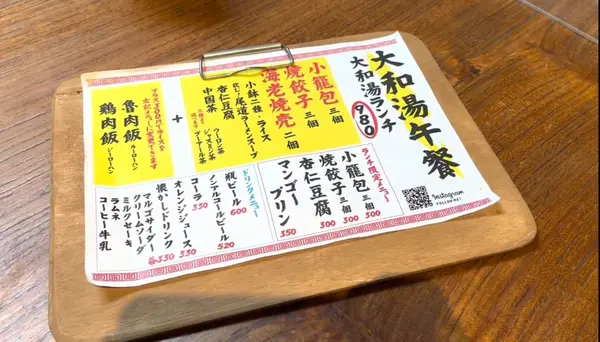 大和湯午餐
大和湯ランチ
980
小籠包 三個
焼餃子 三個
海老焼売 二個
小鉢二種・ライス
尾道ラーメンスープ
杏仁豆腐
中国茶
ウーロン茶
ジャスミン茶
プーアール茶
+
プラス300円でライスを
左記メニューに変更できます
魯肉飯 ルーローハン
鶏肉飯 ジーローハン
ランチ限定メニュー
小籠包 三個 300
焼餃子 三個 300
杏仁豆腐 300
マンゴープリン 350
ドリンクメニュー
瓶ビール 600
ノンアルコールビール 520
コーラ 330
オレンジジュース 330
懐かしドリンク 各330
マルゴサイダー
クリームソーダ
ミルクセーキ
ラムネ
コーヒー牛乳
Instagram
FOLLOW ME!